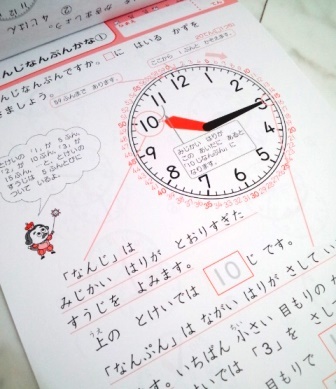 かきましょう。
② 4じはん
んじなんぷんかな①
なんじなんぷんですか。□に はいる かずを
きましょう。
ここから 1ぷんと かぞえます。
59ふんまで あります。
12
1
2
3
4
5
6
7
8
9
10
11
みじかい はりが
この あいだに あると
10じなんぷん に
なります。
とけいの 「1」が 5ふん、
「2」が 10ぷん、「3」が
15ふん…と、とけいの
すうじは 5ふんとびに
ついて いるよ。
「なんじ」は
みじかい はりが とおりすぎた
すうじを よみます。
上の とけいでは 10じ です。
うえ
「なんぷん」は ながい はりが さして い
す。いちばん 小さい 目もりの か
ちい
いでは 「3」を さし
目もりで 1